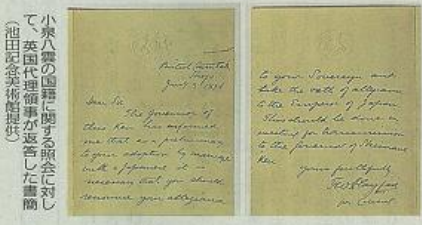 小泉八雲の国籍に関する照会に対し
て、英国代理領事が返答した書簡
（池田記念美術館提供）
British Consulate
Dear Sir
The Governor of
this Ken has informed
me that as a preliminary
to your adoption by marriage
with a Japanese it is
necessary that you should
renounce your allegiance
to your Sovereign and
take the oath of allegiance
to the Emperor of Japan.
This should be done in
writing for transmission
to the Governor of Shimane
Ken
Yours faithfully